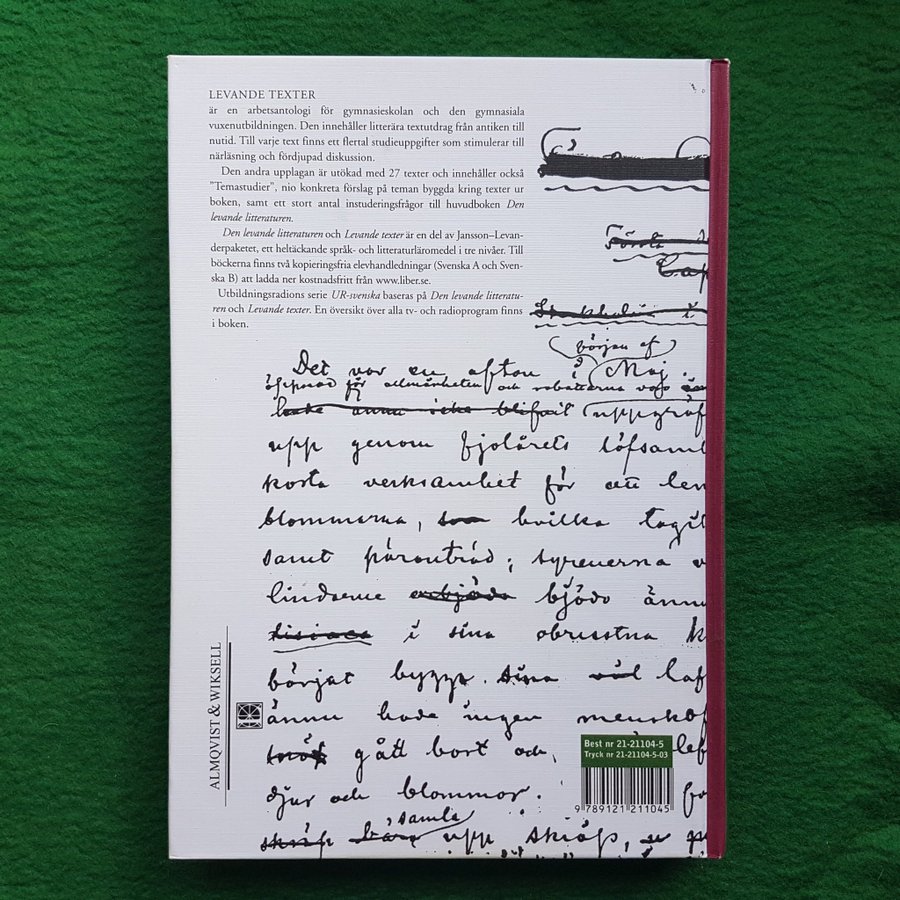 LEVANDE TEXTER
är en arbetsantologi för gymnasieskolan och den gymnasiala
vuxenutbildningen. Den innehåller litterära textutdrag från antiken till
nutid. Till varje text finns ett flertal studieuppgifter som stimulerar till
närläsning och fördjupad diskussion.
Den andra upplagan är utökad med 27 texter och innehåller också
"Temastudier", nio konkreta förslag på teman byggda kring texter ur
boken, samt ett stort antal instuderingsfrågor till huvudboken Den
levande litteraturen.
Den levande litteraturen och Levande texter är en del av Jansson–Levan-
derpaketet, ett heltäckande språk- och litteraturläromedel i tre nivåer. Till
böckerna finns två kopieringsfria elevhandledningar (Svenska A och Sven-
ska B) att ladda ner kostnadsfritt från www.liber.se.
Utbildningsradions serie UR-svenska baseras på Den levande litteratu-
ren och Levande texter. En översikt över alla tv- och radioprogram finns
i boken.
Första
Cap
Stockholm i
början af
Det var en afton i Maj.
öppnad för allmänheten och rabatterna voro
hade ännu icke blifvit uppgräf
upp genom fjolårets löfsaml
korta verksamhet för att len
blommarna, som hvilka tagit
samt päronträd; syrenerna
lindarne erbjödo bjödo ännu
i sina obrustna k
börjat bygga sina löf
ännu hade ingen menskof
gått bort och
djur och blommor.
samla
upp skräp,
ALMQVIST & WIKSELL
Best nr 21-21104-5
Tryck nr 21-21104-5-03
9 789121 211045